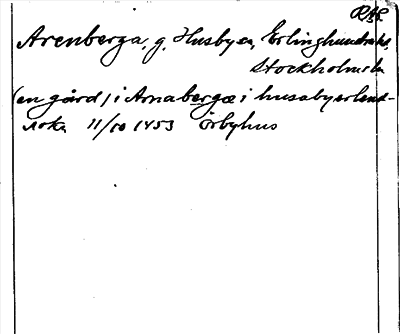 RAP.
Arenberga, g. Husby sn, Erlinghundra hd,
Stockholms län
(en gård) i Arnabergæ i husaby sn
sokn 11/10 1453 Örbyhus